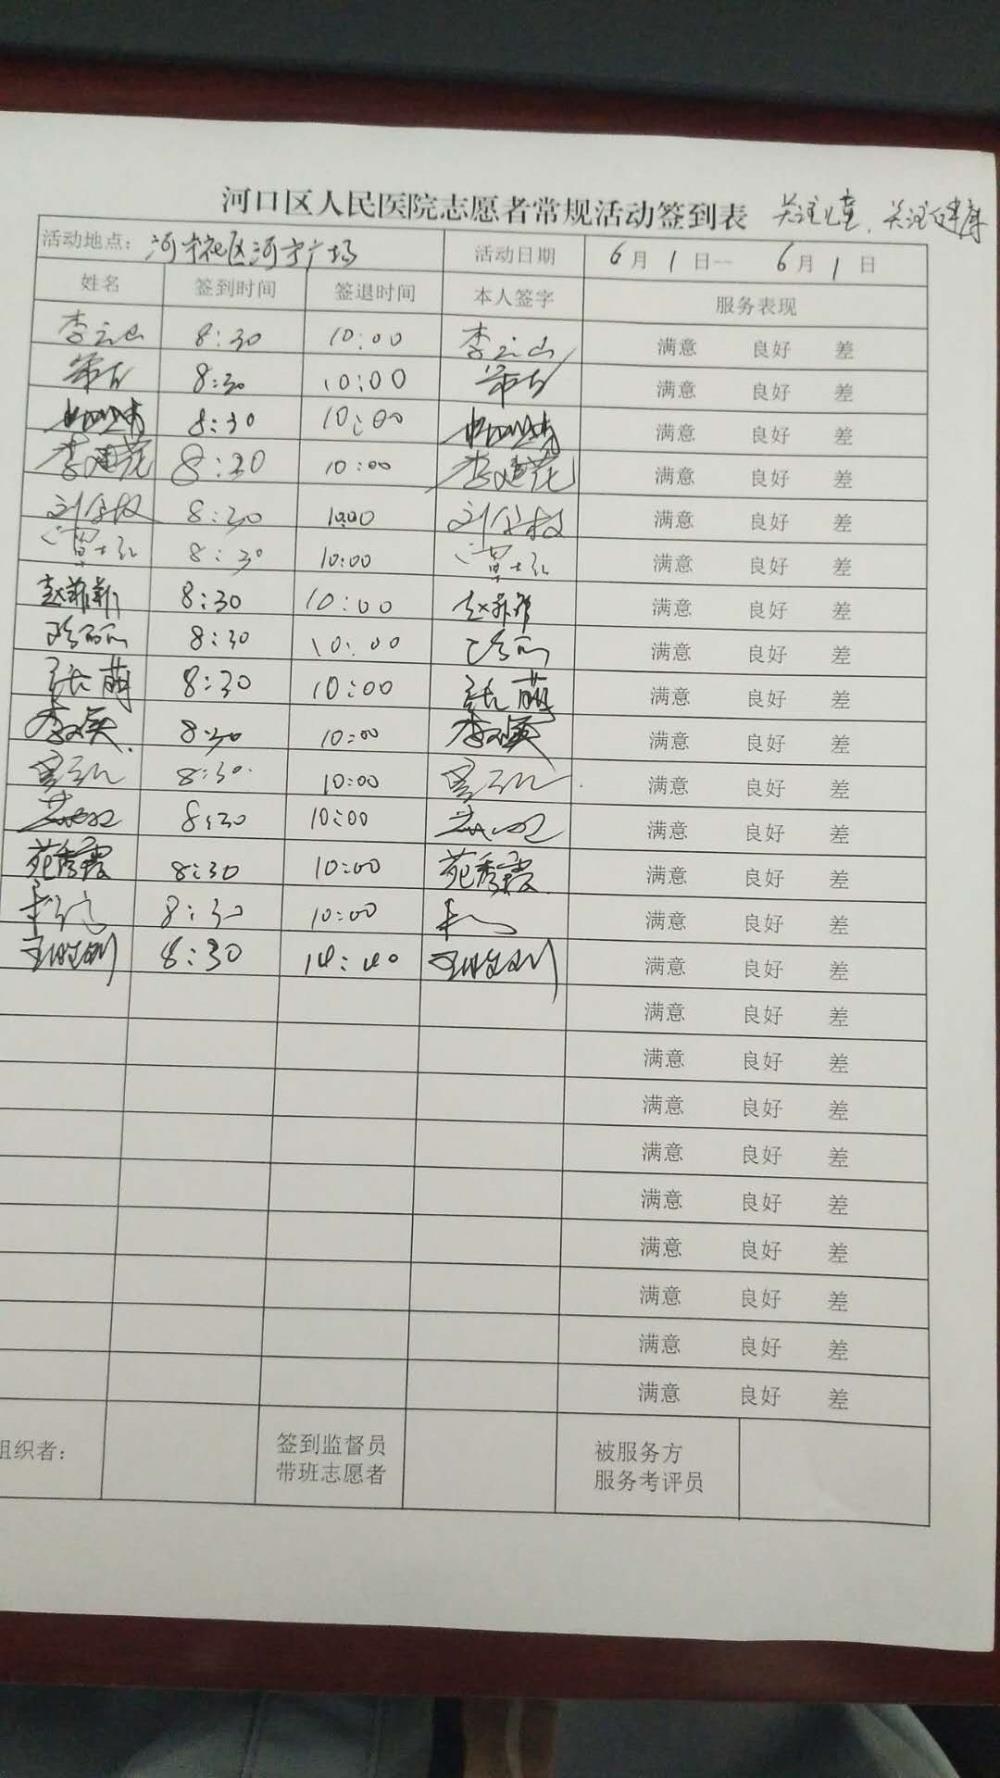 河口区人民医院志愿者常规活动签到表 关注儿童、关注健康
活动地点： 河宁社区河宁广场 活动日期 6月1日— 6月1日
姓名 签到时间 签退时间 本人签字 服务表现
李云山 8:30 10:00 李云山 满意 良好 差
8:30 10:00 满意 良好 差
8:30 10:00 满意 良好 差
李建花 8:30 10:00 李建花 满意 良好 差
8:30 10:00 满意 良好 差
8:30 10:00 满意 良好 差
赵菲菲 8:30 10:00 赵菲菲 满意 良好 差
8:30 10:00 满意 良好 差
张萌 8:30 10:00 张萌 满意 良好 差
8:30 10:00 满意 良好 差
8:30 10:00 满意 良好 差
8:30 10:00 满意 良好 差
苑秀霞 8:30 10:00 苑秀霞 满意 良好 差
8:30 10:00 满意 良好 差
8:30 14:40 满意 良好 差
满意 良好 差
满意 良好 差
满意 良好 差
满意 良好 差
满意 良好 差
满意 良好 差
满意 良好 差
满意 良好 差
满意 良好 差
组织者： 签到监督员 被服务方
带班志愿者 服务考评员